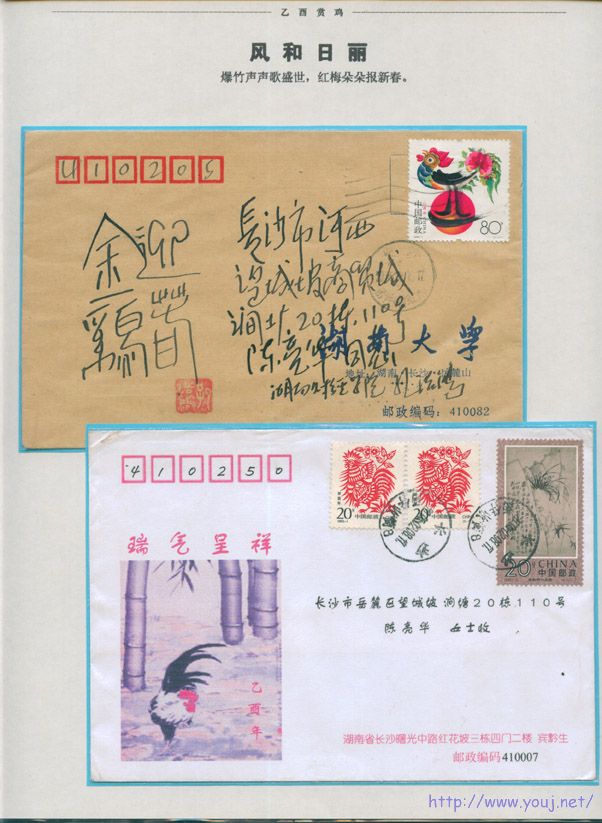 乙酉赏鸡
风和日丽
爆竹声声歌盛世，红梅朵朵报新春。
410205
中国邮政
80分
金迎
鸡
长沙市河西
望城坡商贸城
涧塘20栋110号
陈亮华
湖南大学
地址：湖南·长沙·岳麓山
邮政编码：410082
410250
20分
中国邮政
20分
20分
CHINA
中国邮政
瑞气呈祥
长沙市岳麓区望城坡涧塘20栋110号
陈亮华 女士收
乙酉年
湖南省长沙曙光中路红花坡三栋四门二楼 宾黔生
邮政编码410007
http://www.youj.net/